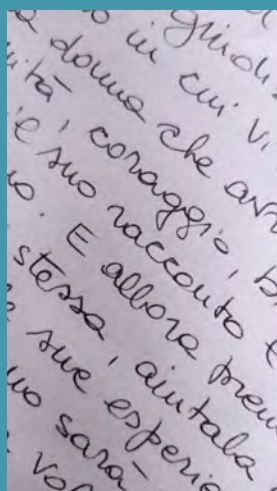 giudi
o in cui vi
a donna che arr
ità, coraggio, b
e suo racconto è
o. E allora pren
stessa, aiutala
e sue esperie
no sarà
vol